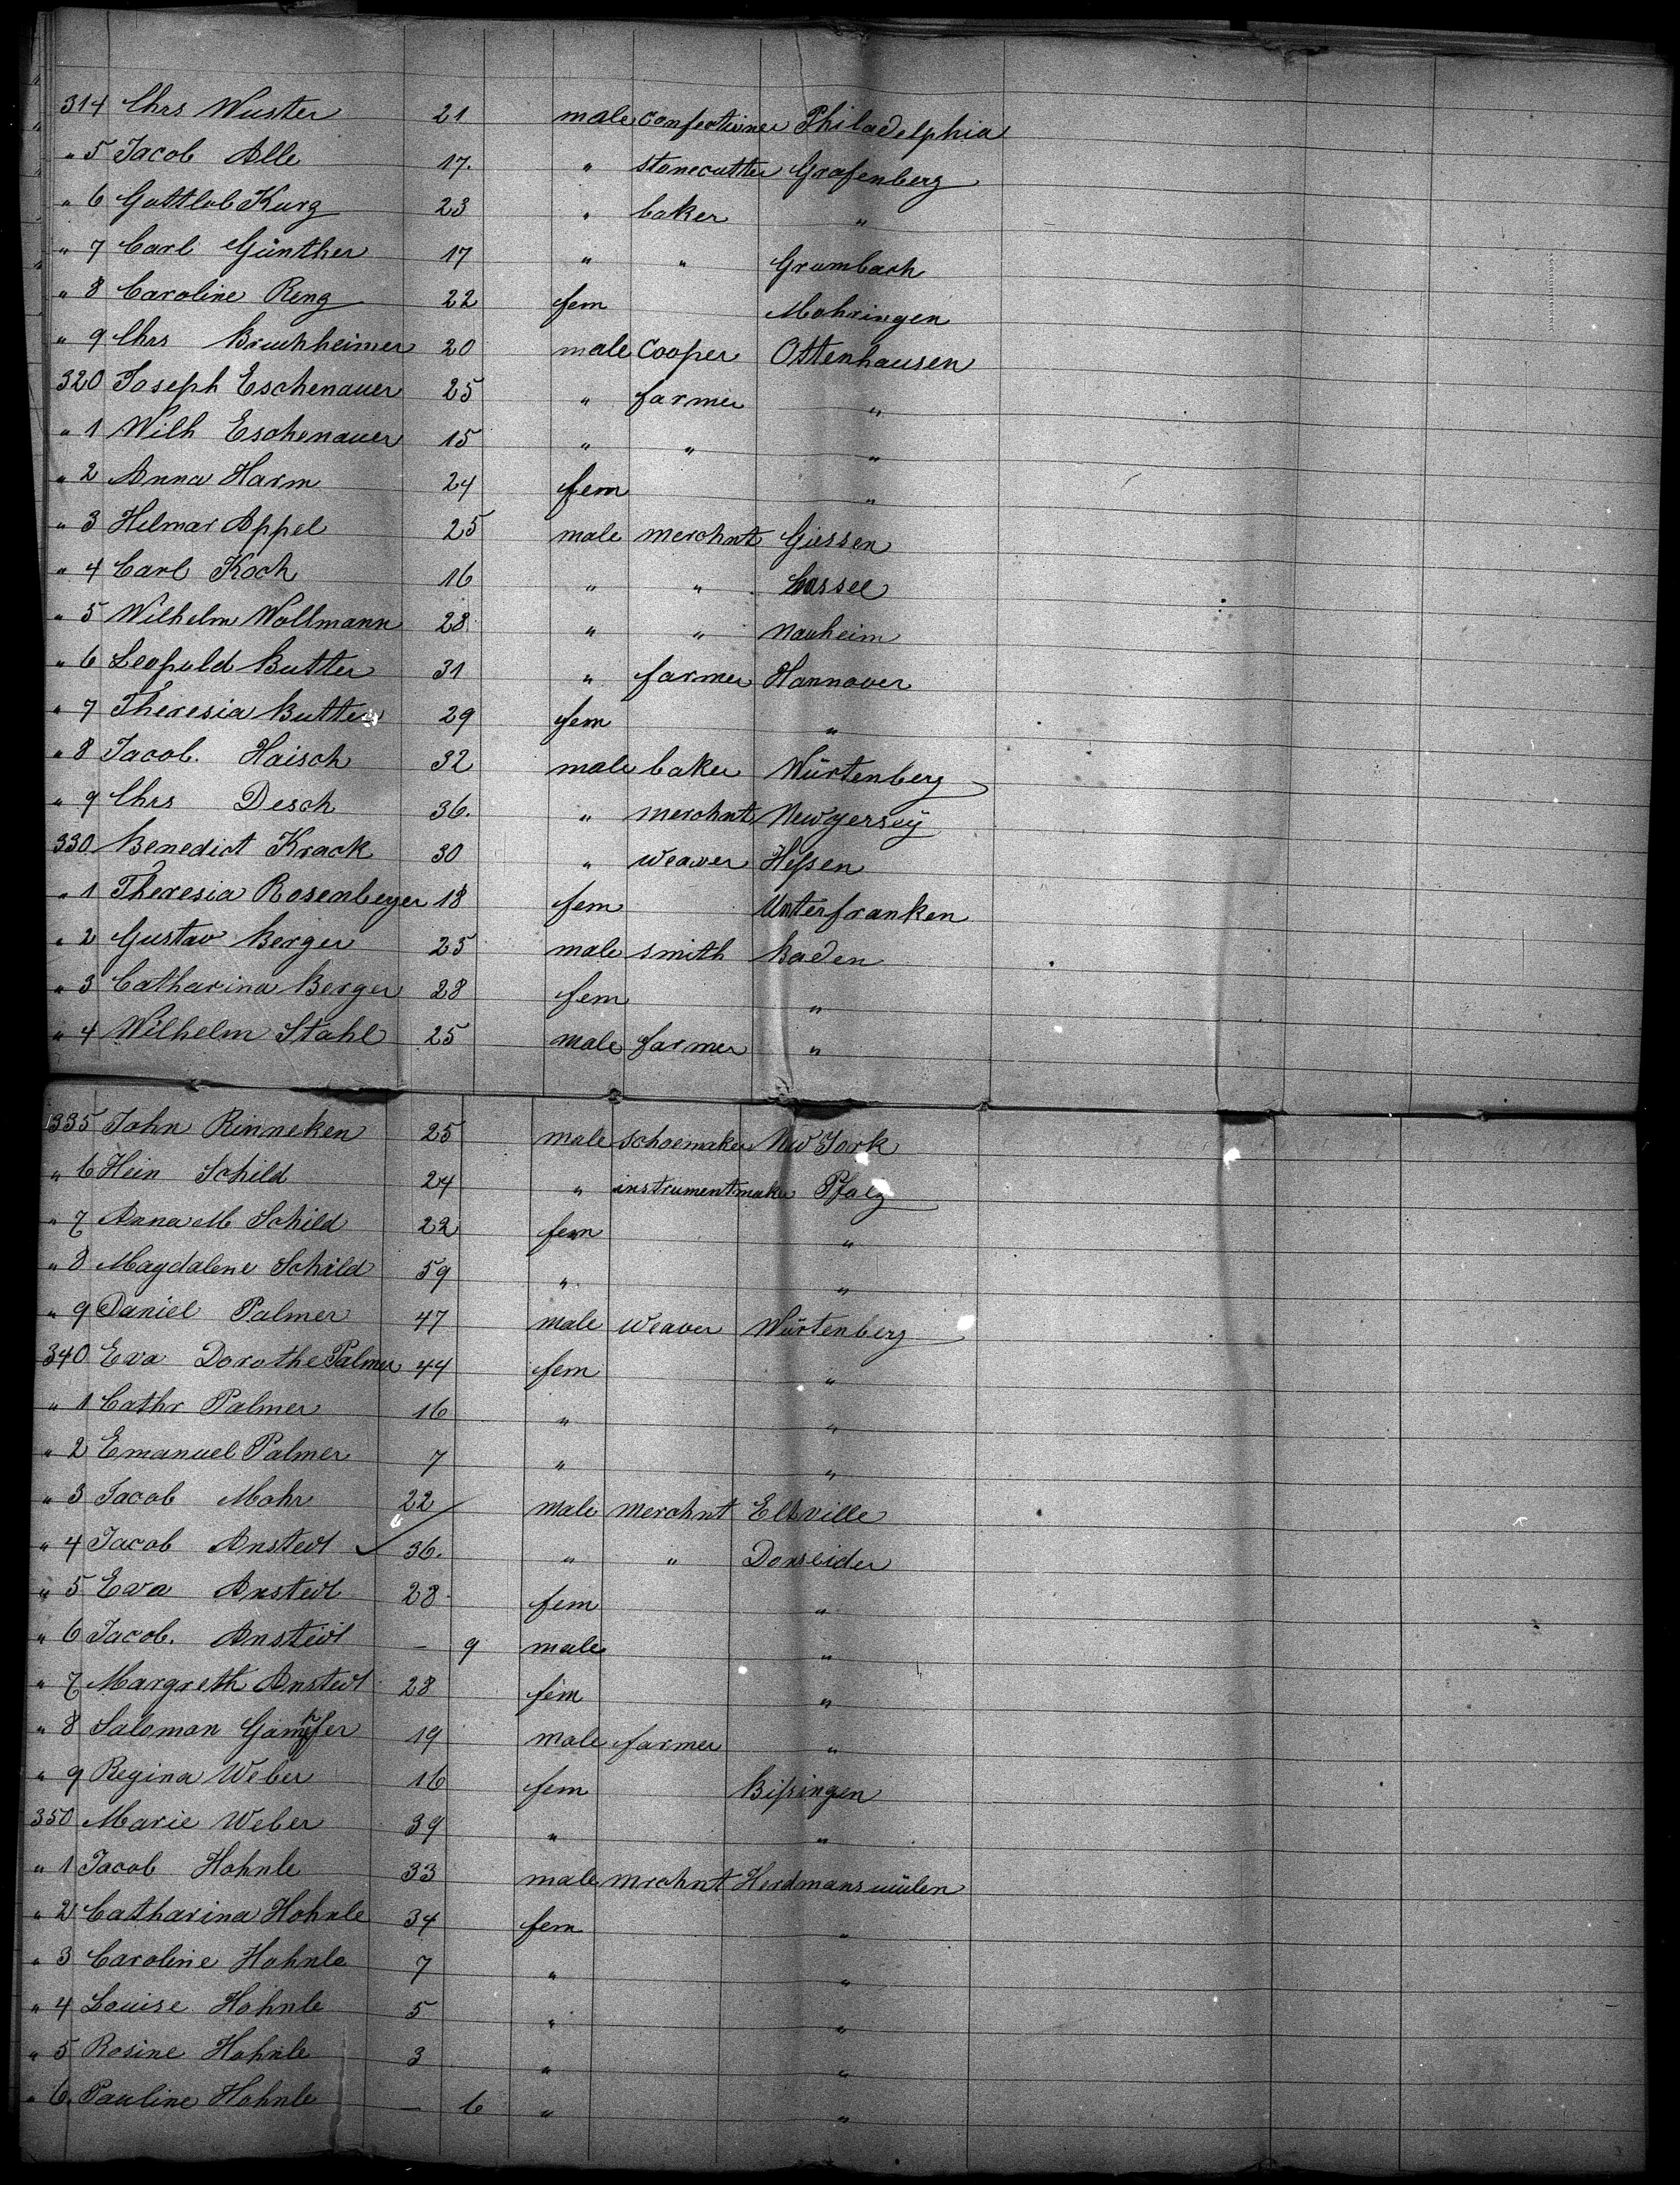 314 Chrs Wuster 21 male confectiner Philadelphia
" 5 Jacob Alle 17. " stonecutter Grafenberg
" 6 Gottlob Kurz 23 " baker "
" 7 Carl Günther 17 " " Grumbach
" 8 Caroline Renz 22 fem Mohringen
" 9 Chrs Bruchheimer 20 male Cooper Ottenhausen
320 Joseph Eschenauer 25 " farmer "
" 1 Wilh Eschenauer 15 " " "
" 2 Anna Harm 24 fem "
" 3 Hilmar Appel 25 male merchnt Giessen
" 4 Carl Koch 16 " " Cassel
" 5 Wilhelm Wollmann 28. " " Nauheim
" 6 Leopold Butter 31 " farmer Hannover
" 7 Theresia Butter 29 fem "
" 8 Jacob. Haisch 32 male baker Würtenberg
" 9 Chrs Desch 36. " merchnt Newyersey
330 Benedict Krack 30 " weaver Heſsen
" 1 Theresia Rosenbeyer 18 fem Unterfranken
" 2 Gustav Berger 25 male smith Baden
" 3 Catharina Berger 28 fem "
" 4 Wilhelm Stahl 25 male farmer "
335 John Rinneken 25 male schoemaker New York
" 6 Hein Schild 24 " instrumentmaker Pfalz
" 7 Anna M Schild 22 fem "
" 8 Magdalene Schild 59 " "
" 9 Daniel Palmer 47 male weaver Würtenberg
340 Eva Dorothe Palmer 44 fem "
" 1 Cathr Palmer 16 " "
" 2 Emanuel Palmer 7 " "
" 3 Jacob Mohr 22 male merchnt Eltville
" 4 Jacob Anstedt 36. " " Donseider
" 5 Eva Anstedt 28 fem "
" 6 Jacob. Anstedt – 9 male "
" 7 Margreth Anstedt 28 fem "
" 8 Saloman 19 male farmer "
" 9 Regina Weber 16 fem Biſsingen
350 Marie Weber 39 " "
" 1 Jacob Hohnle 33 male mrchnt Herdmansuülen
" 2 Catharina Hohnle 34 fem "
" 3 Caroline Hohnle 7 " "
" 4 Louise Hohnle 5 " "
" 5 Rosine Hohnle 3 " "
" 6. Pauline Hohnle – 6 " "